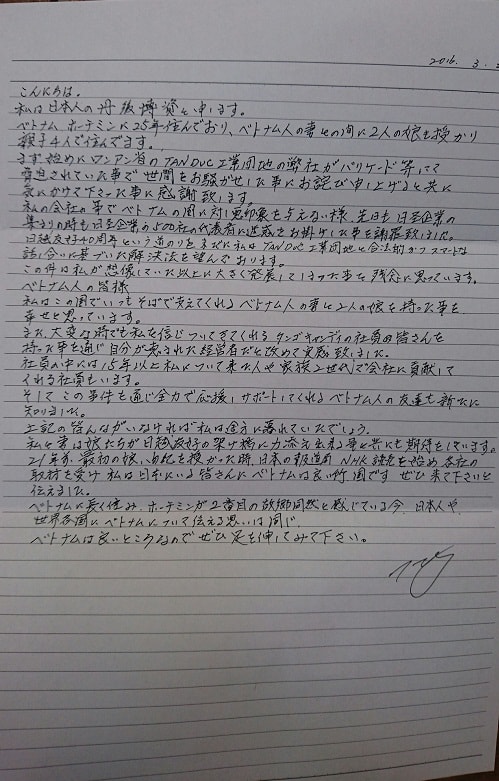 2016. 3.
こんにちは。
私は日本人の丹後博資と申します。
ベトナム ホーチミンに25年住んでおり、ベトナム人の妻との間に2人の娘を授かり
親子4人で住んでます。
まず始めにロンアン省のTAN DUC工業団地の弊社がバリケード等にて
脅迫されていた事で世間をお騒がせした事にお詫び申し上げると共に
気にかけて下さった事に感謝致します。
私の会社の事でベトナムの国に対し悪印象を与えない様、先日も日系企業の
集まりの時も日系企業の 社の代表者に迷惑をお掛けした事を謝罪致しました。
日越友好40周年という道のりをまだに私はTAN DUC工業団地と合法的かつスマートな
話し合いに基づいた解決法を望んでおります。
この件は私が想像していた以上に大きく発展してしまった事を残念に思っています。
ベトナム人の皆様
私はこの国でいつもそばで支えてくれるベトナム人の妻と2人の娘を持った事を
幸せと思っています。
また、大変な時でも私を信じついてきてくれるタンゴキャンディの社員の皆さんを
持った事を通じ自分が恵まれた経営者だと改めて実感致しました。
社員の中には15年以上私についてきた人や家族2世代で会社に貢献して
くれる社員もいます。
そしてこの事件を通じ全力で応援しサポートしてくれるベトナム人の友達も新たに
知りました。
上記の皆んながいなければ私は途方に暮れていたでしょう。
私と妻は娘たちが日越友好の架け橋に力添え出来る事と共にも期待をしています。
21年前、最初の娘、 を授かった時、日本の報道局 NHK 読売を始め各社の
取材を受け 私は日本にいる皆さんにベトナムは良い所 国です ぜひ来て下さいと
伝えました。
ベトナムに長く住み、ホーチミンが2番目の故郷同然と感じている今、日本人や
世界各国にベトナムについて伝える思いは同じ。
ベトナムは良いところなのでぜひ足を伸ばしてみて下さい。